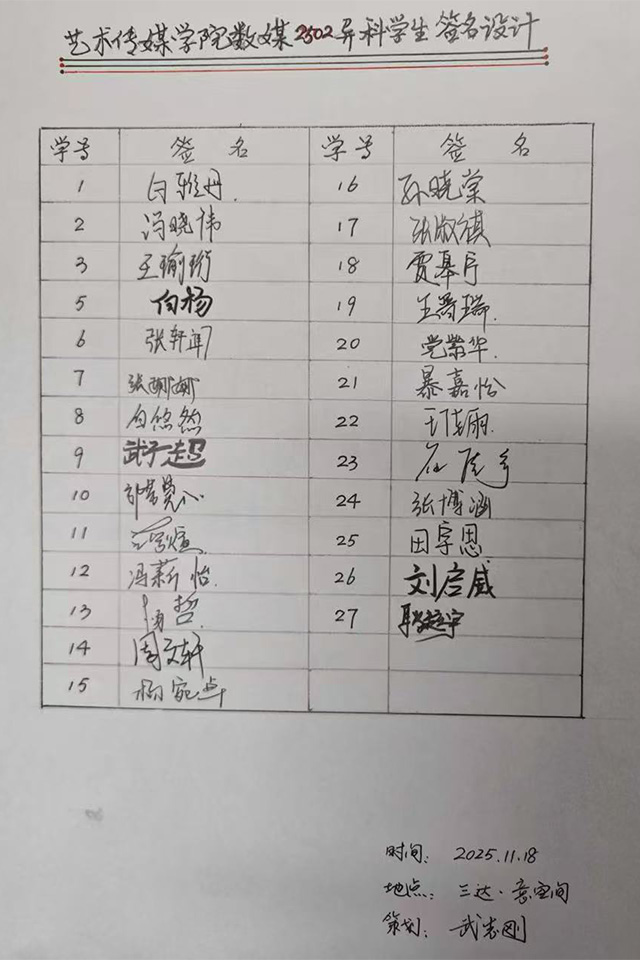 艺术传媒学院数媒2502异科学生签名设计
学号 签名 学号 签名
1 白雅丹 16 孙晓棠
2 冯晓伟 17 张淑祺
3 王瑜珩 18
5 向杨 19 王晋瑞
6 张轩闻 20 党荣华
7 张娜娜 21 暴嘉怡
8 白悠然 22 王佳丽
9 武子超 23
10 24 张博涵
11 25 田宇思
12 冯薪怡 26 刘启威
13 哲 27
14 周文轩
15 杨宛卓
时间: 2025.11.18
地点: 三达·意空间
策划: 武志刚